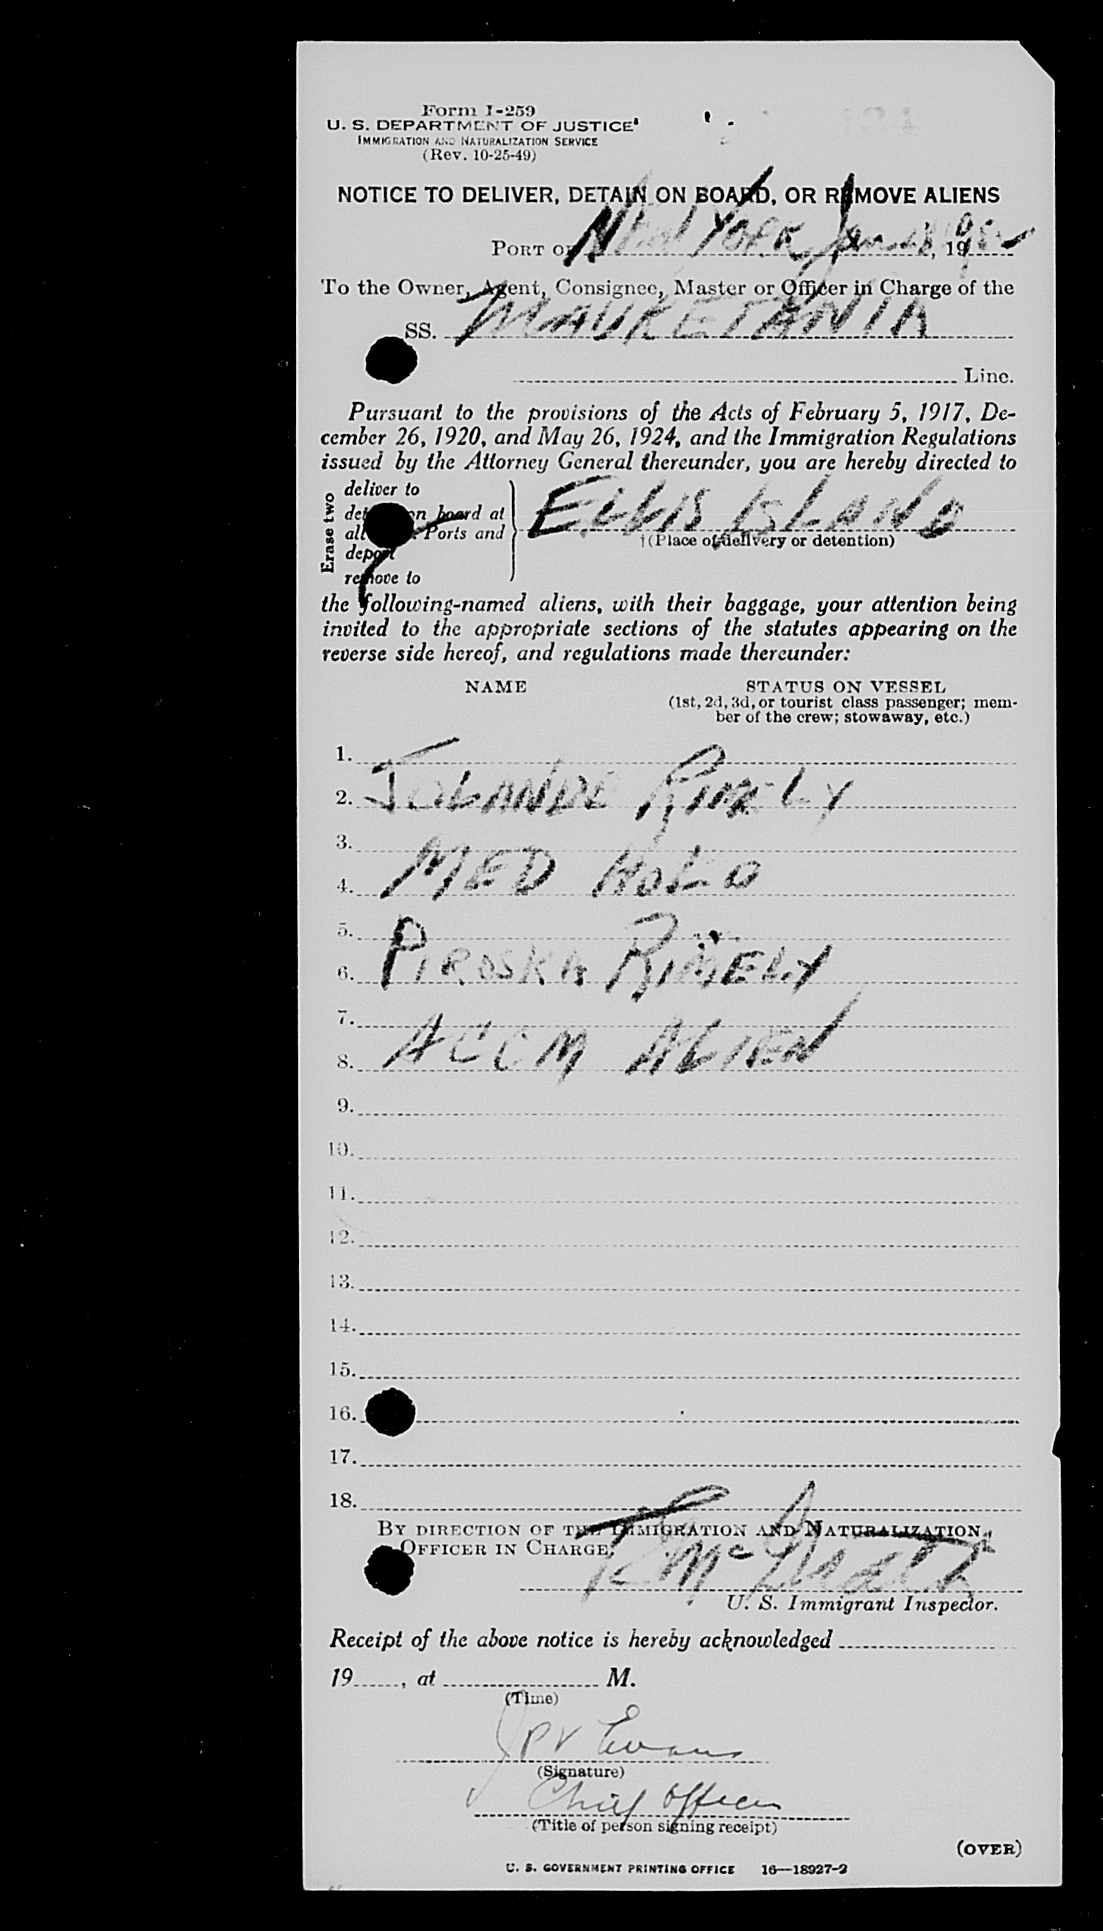 Form I-259
U. S. DEPARTMENT OF JUSTICE
IMMIGRATION AND NATURALIZATION SERVICE
(Rev. 10-25-49)
NOTICE TO DELIVER, DETAIN ON BOARD, OR REMOVE ALIENS
PORT OF New York, Jan , 19
To the Owner, Agent, Consignee, Master or Officer in Charge of the
SS. MAURETANIA
Line.
Pursuant to the provisions of the Acts of February 5, 1917, De-
cember 26, 1920, and May 26, 1924, and the Immigration Regulations
issued by the Attorney General thereunder, you are hereby directed to
Erase two
deliver to
on board at
all Ports and
deport
remove to
ELLIS ISLAND
†(Place of delivery or detention)
the following-named aliens, with their baggage, your attention being
invited to the appropriate sections of the statutes appearing on the
reverse side hereof, and regulations made thereunder:
NAME STATUS ON VESSEL
(1st, 2d, 3d, or tourist class passenger; mem-
ber of the crew; stowaway, etc.)
1.
2. JOLANDE RIMELY
3.
4. MED HOLD
5.
6. PIROSKA RIMELY
7.
8. ACCM ALIEN
9.
10.
11.
12.
13.
14.
15.
16.
17.
18.
BY DIRECTION OF THE IMMIGRATION AND NATURALIZATION
OFFICER IN CHARGE,
U. S. Immigrant Inspector.
Receipt of the above notice is hereby acknowledged
19 , at M.
(Time)
Evans
(Signature)
Chief Officer
(Title of person signing receipt)
(OVER)
U. S. GOVERNMENT PRINTING OFFICE 16—18927-2